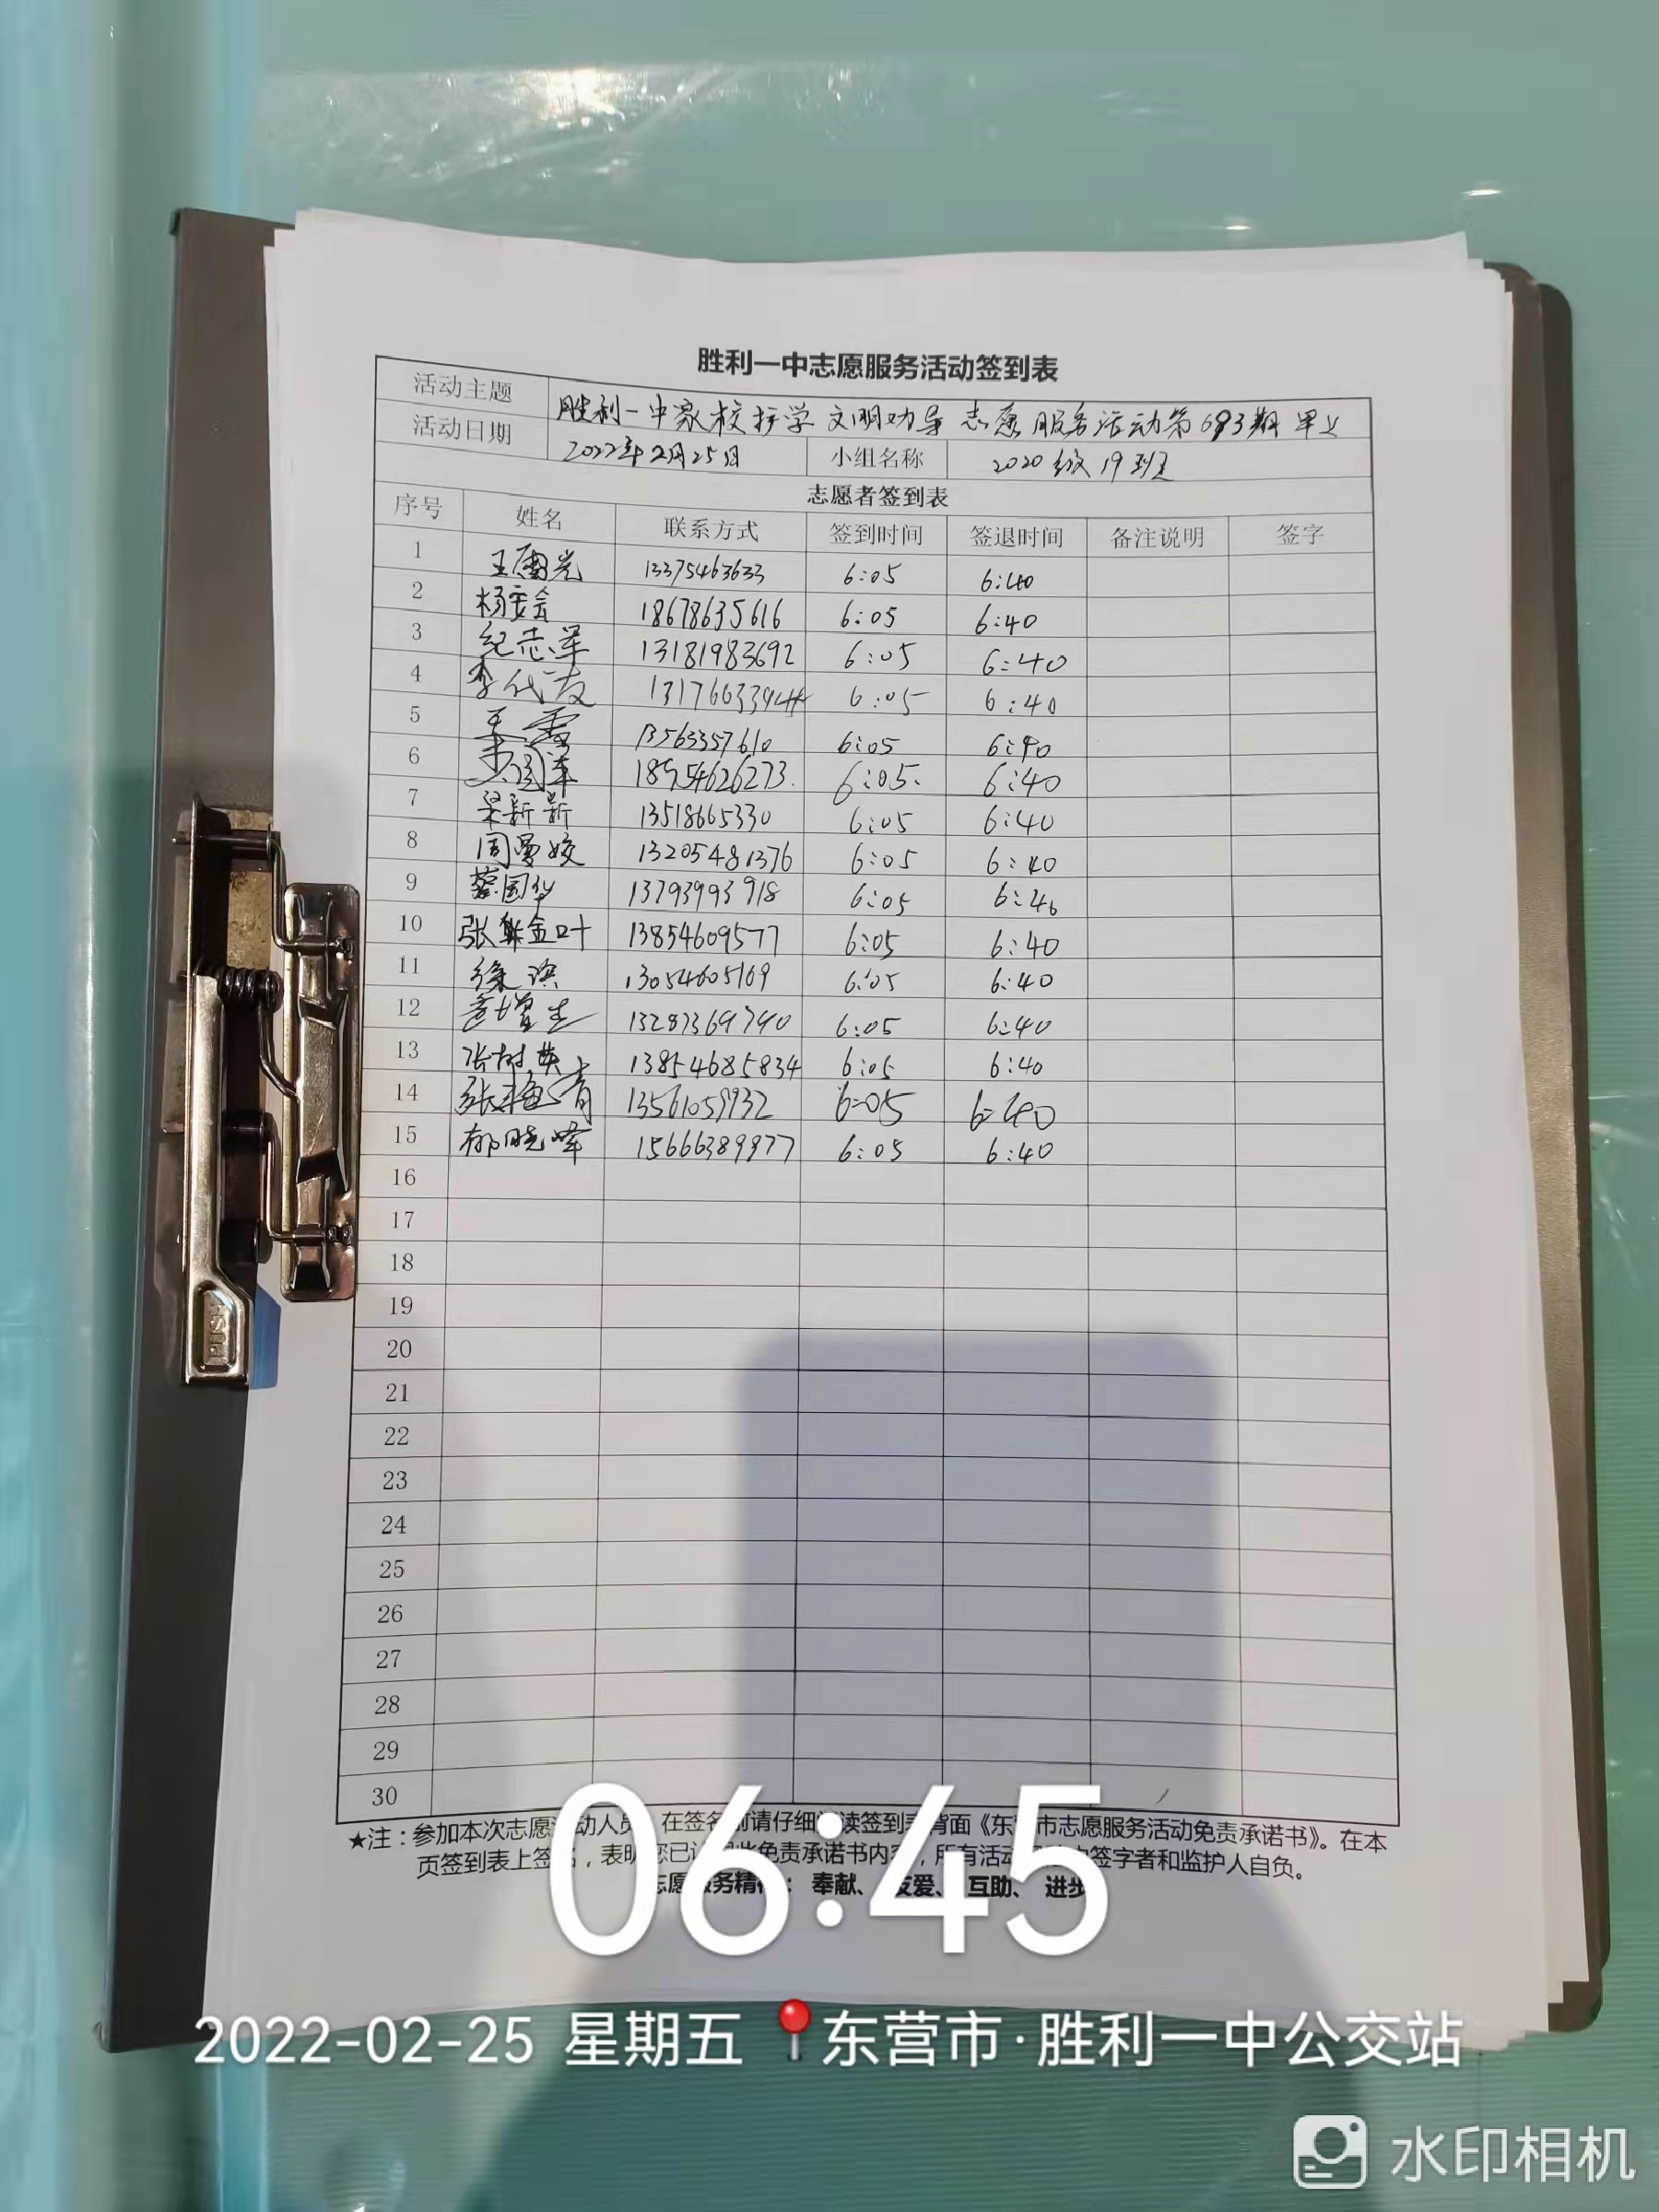 胜利一中志愿服务活动签到表
活动主题 胜利一中家校护学文明劝导志愿服务活动第693期
活动日期 2022年2月25日 小组名称 2020级19班
志愿者签到表
序号 姓名 联系方式 签到时间 签退时间 备注说明 签字
1 13375463633 6:05 6:40
2 18678635616 6:05 6:40
3 纪志军 13181983692 6:05 6:40
4 李代友 6:05 6:40
5 13563357610 6:05 6:40
6 18954626273 6:05 6:40
7 梁新新 13518665330 6:05 6:40
8 周曼姣 13205481376 6:05 6:40
9 蔡国华 13793993918 6:05 6:40
10 张 金叶 13854609577 6:05 6:40
11 徐滨 13054605169 6:05 6:40
12 13287369790 6:05 6:40
13 张树英 13854685834 6:05 6:40
14 张海青 13561059932 6:05 6:40
15 郁晓峰 15666389977 6:05 6:40
16
17
18
19
20
21
22
23
24
25
26
27
28
29
30
★注：参加本次志愿活动人员，在签名前请仔细阅读签到表背面《东营市志愿服务活动免责承诺书》。在本
页签到表上签名，表明您已认 此免责承诺书内容，所有活动 签字者和监护人自负。
志愿服务精神：奉献、友爱、互助、进步
06:45
2022-02-25 星期五 东营市·胜利一中公交站
水印相机